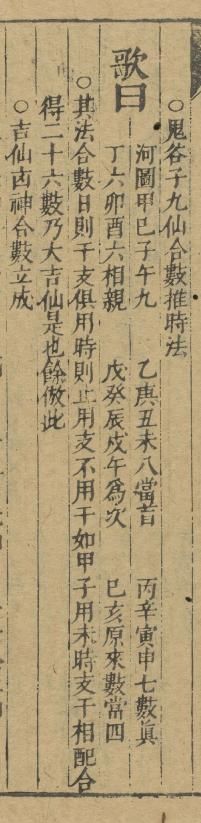 ○鬼谷子九仙合數推時法
歌曰
河圖甲巳子午九 乙庚丑未八當首 丙辛寅申七數眞
丁六卯酉六相親 戊癸辰戍午爲次 巳亥原來數當四
○其法合數日則干支俱用時則止用支不用干如甲子用未時支干相配合
得二十六數乃大吉仙是也餘倣此
○吉仙古神合數立成